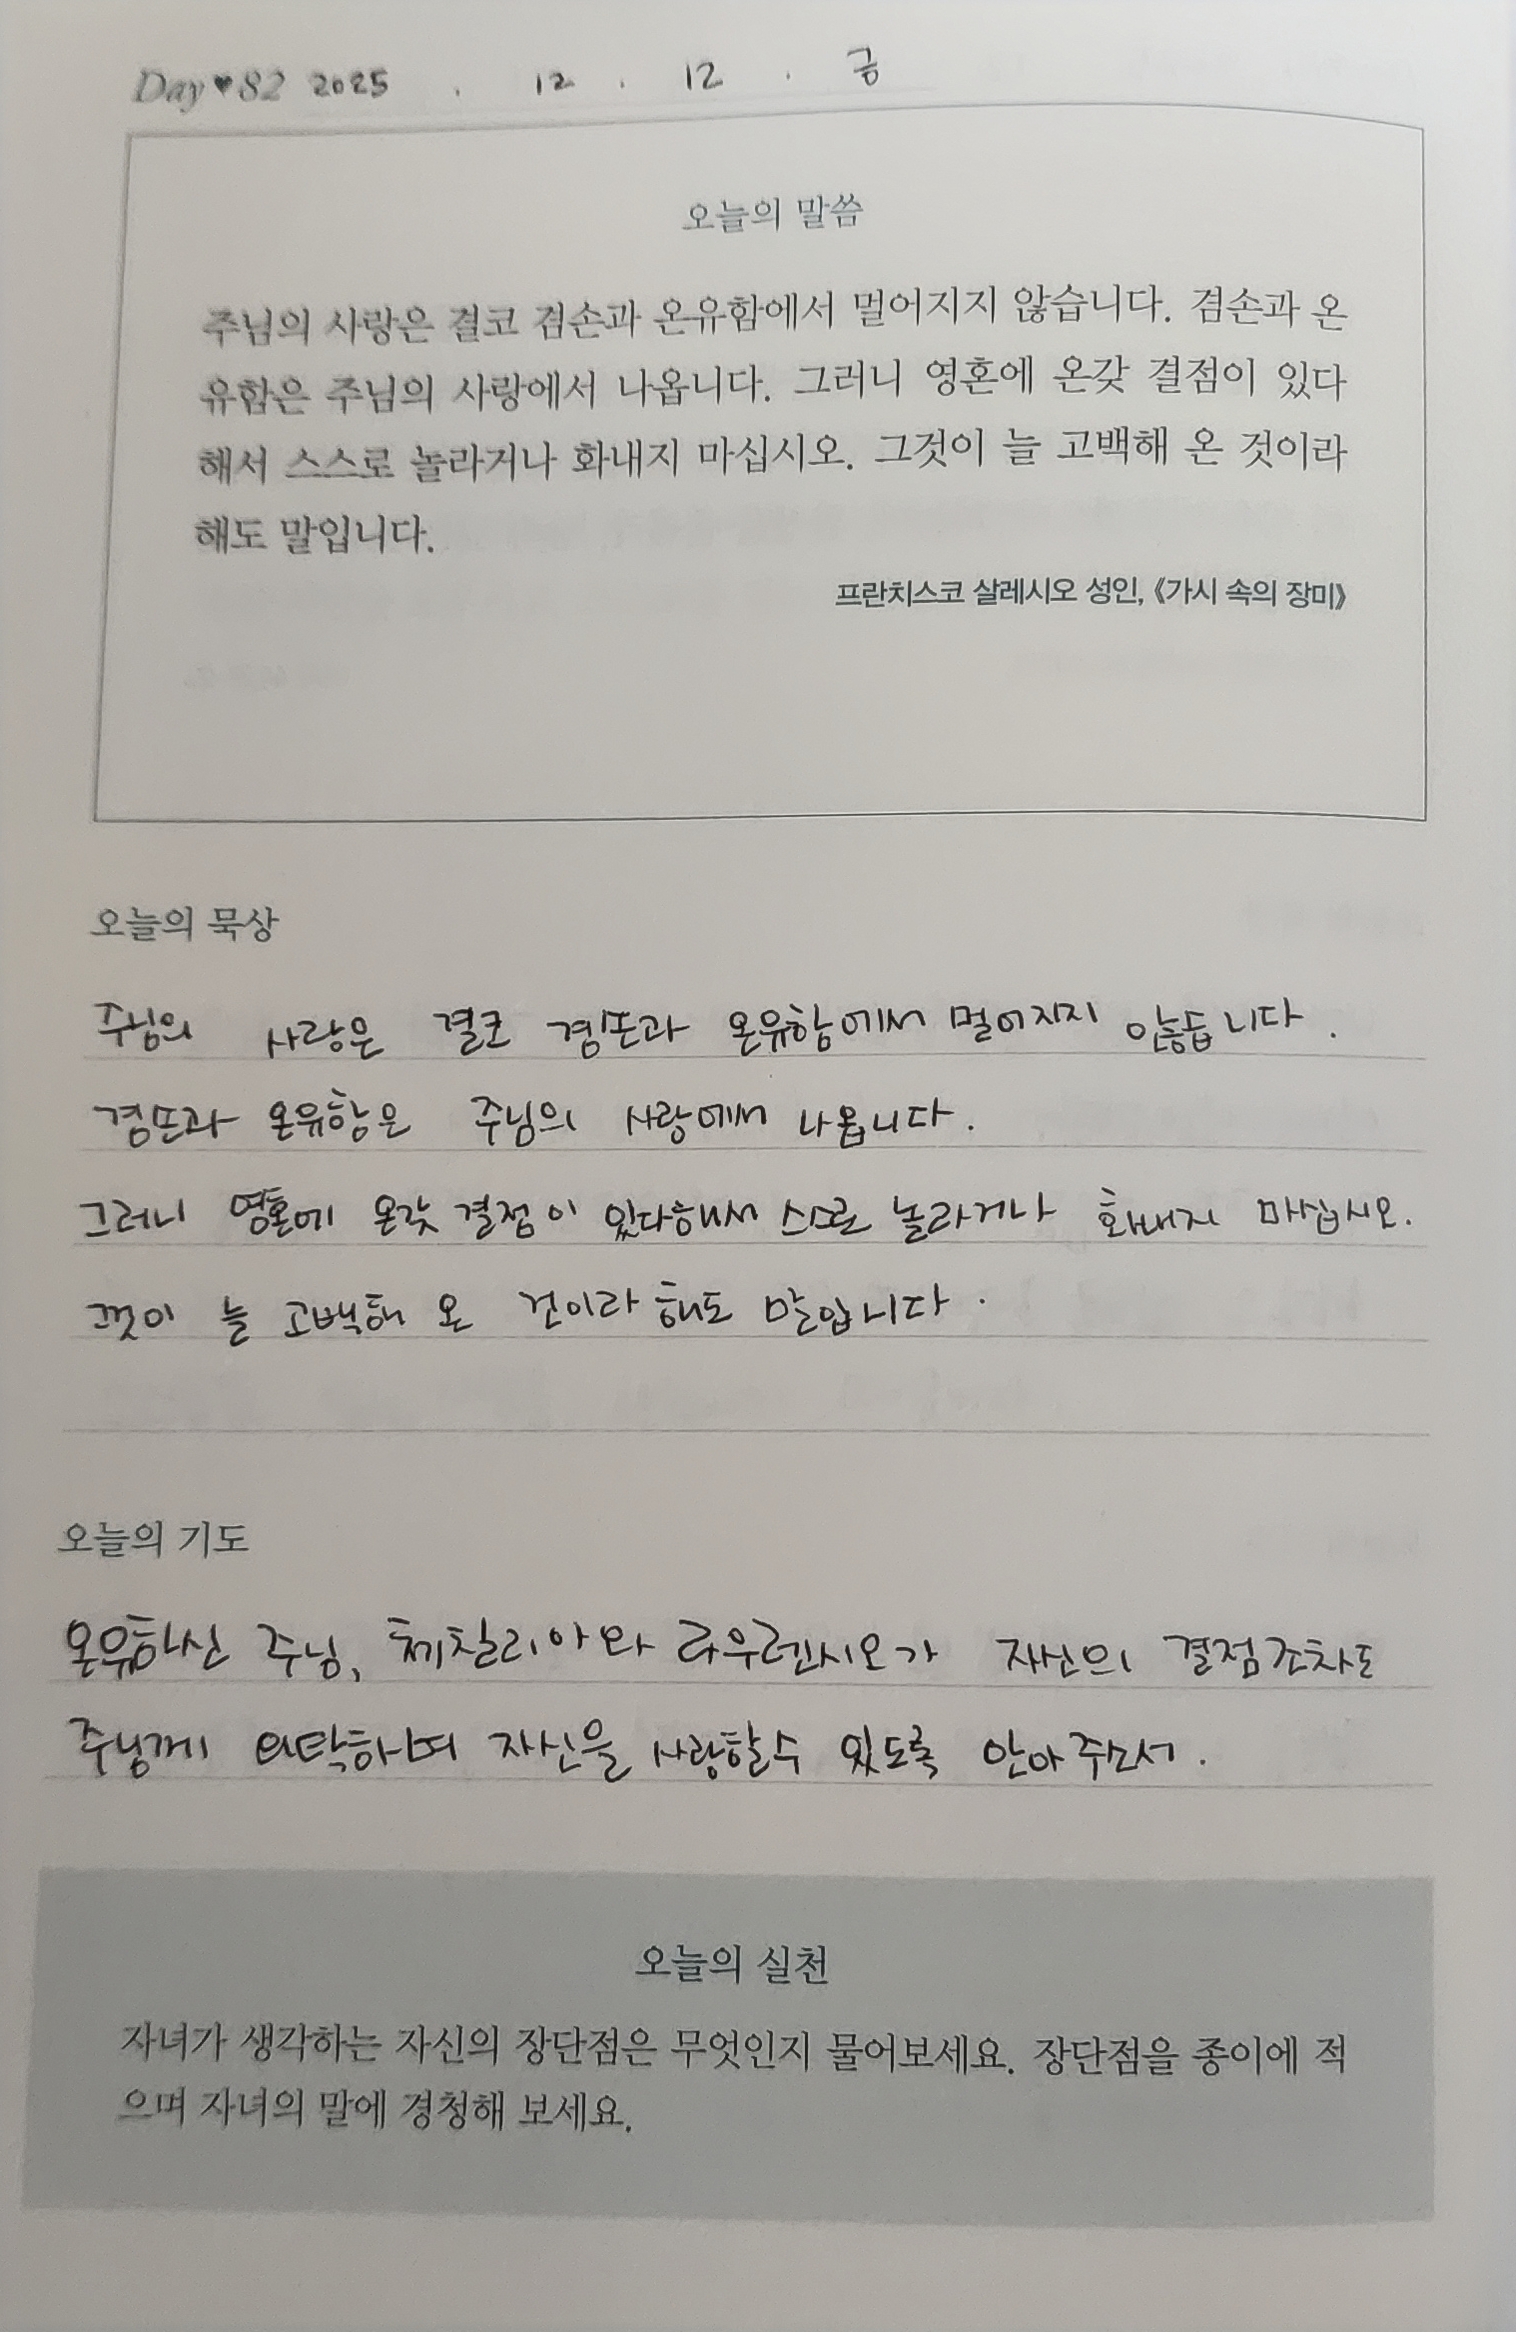 Day♥82 2025 . 12 . 12 . 금
오늘의 말씀
주님의 사랑은 결코 겸손과 온유함에서 멀어지지 않습니다. 겸손과 온
유함은 주님의 사랑에서 나옵니다. 그러니 영혼에 온갖 결점이 있다
해서 스스로 놀라거나 화내지 마십시오. 그것이 늘 고백해 온 것이라
해도 말입니다.
프란치스코 살레시오 성인, 《가시 속의 장미》
오늘의 묵상
주님의 사랑은 결코 겸손과 온유함에서 멀어지지 않습니다.
겸손과 온유함은 주님의 사랑에서 나옵니다.
그러니 영혼에 온갖 결점이 있다해서 스스로 놀라거나 화내지 마십시오.
그것이 늘 고백해 온 것이라 해도 말입니다.
오늘의 기도
온유하신 주님, 체칠리아와 라우렌시오가 자신의 결점조차도
주님께 의탁하며 자신을 사랑할수 있도록 안아주소서.
오늘의 실천
자녀가 생각하는 자신의 장단점은 무엇인지 물어보세요. 장단점을 종이에 적
으며 자녀의 말에 경청해 보세요.